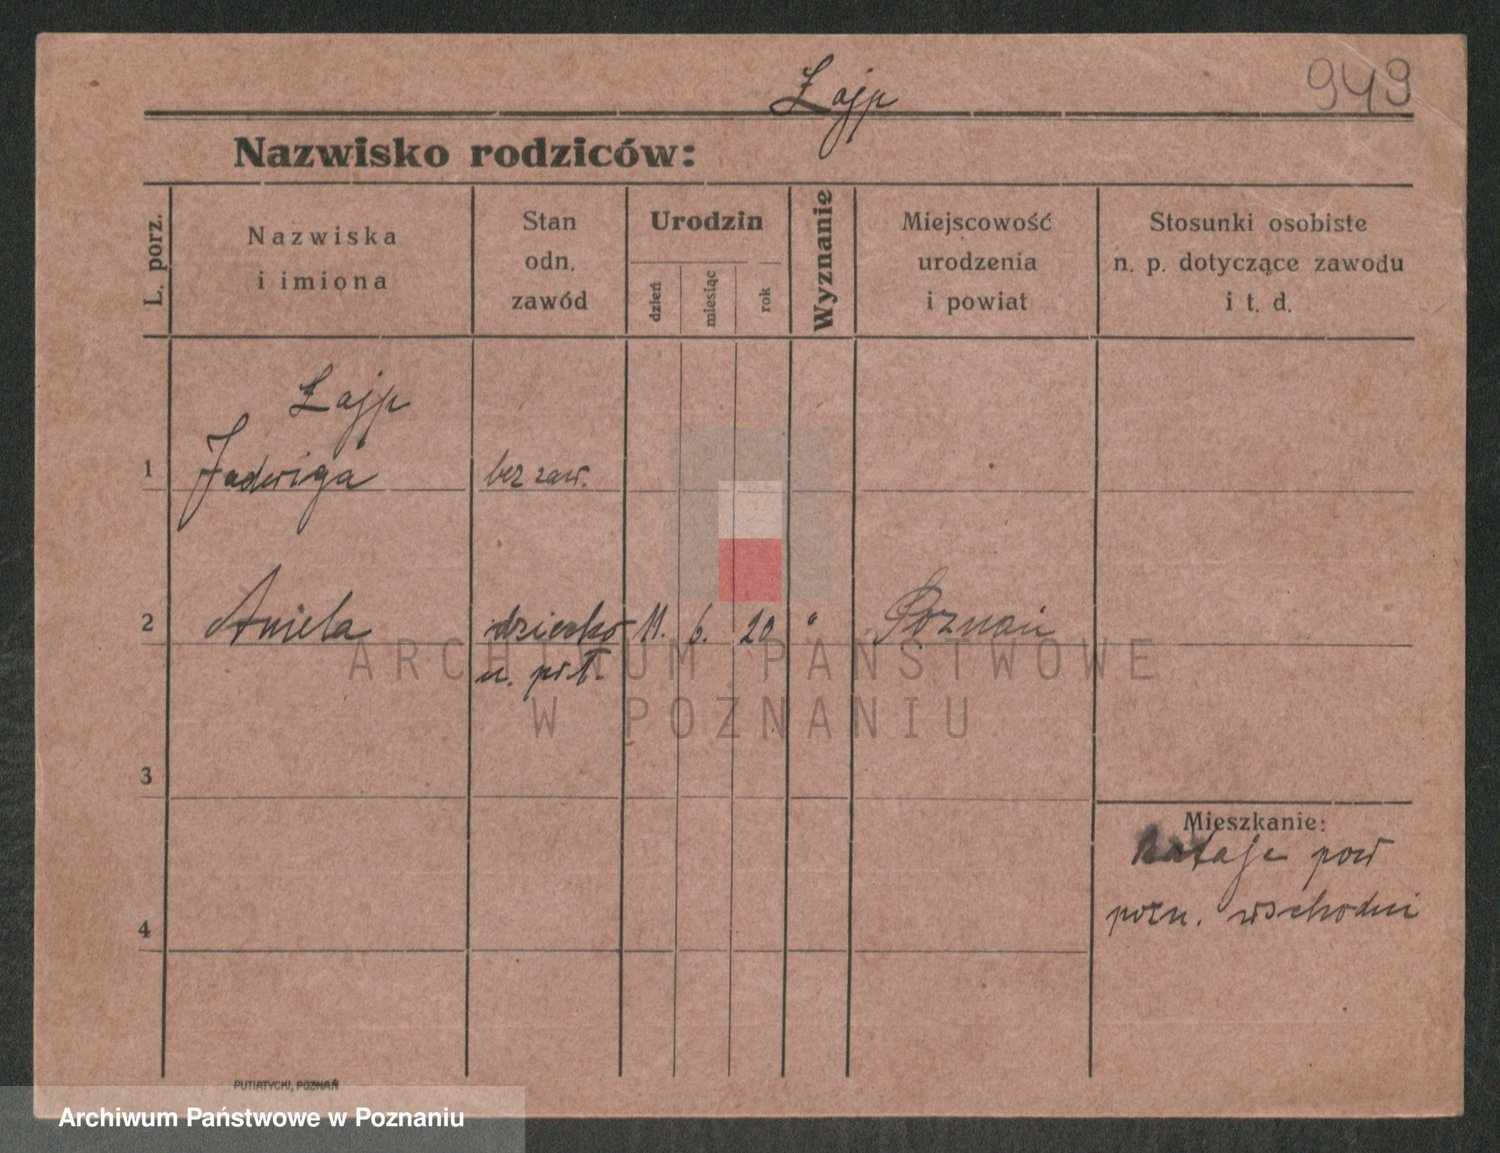 949
Łajp
Nazwisko rodziców:
L. porz.
Nazwiska
i imiona
Stan
odn.
zawód
Urodzin
dzień
miesiąc
rok
Wyznanie
Miejscowość
urodzenia
i powiat
Stosunki osobiste
n. p. dotyczące zawodu
i t. d.
Łajp
1 Jadwiga bez zaw.
2 Aniela dziecko 11. 6. 20 " Poznań
ARCHIWUM PAŃSTWOWE
W POZNANIU
3
Mieszkanie:
Rataje pow
pozn. wschodni
4
PUTIATYCKI, POZNAŃ
Archiwum Państwowe w Poznaniu